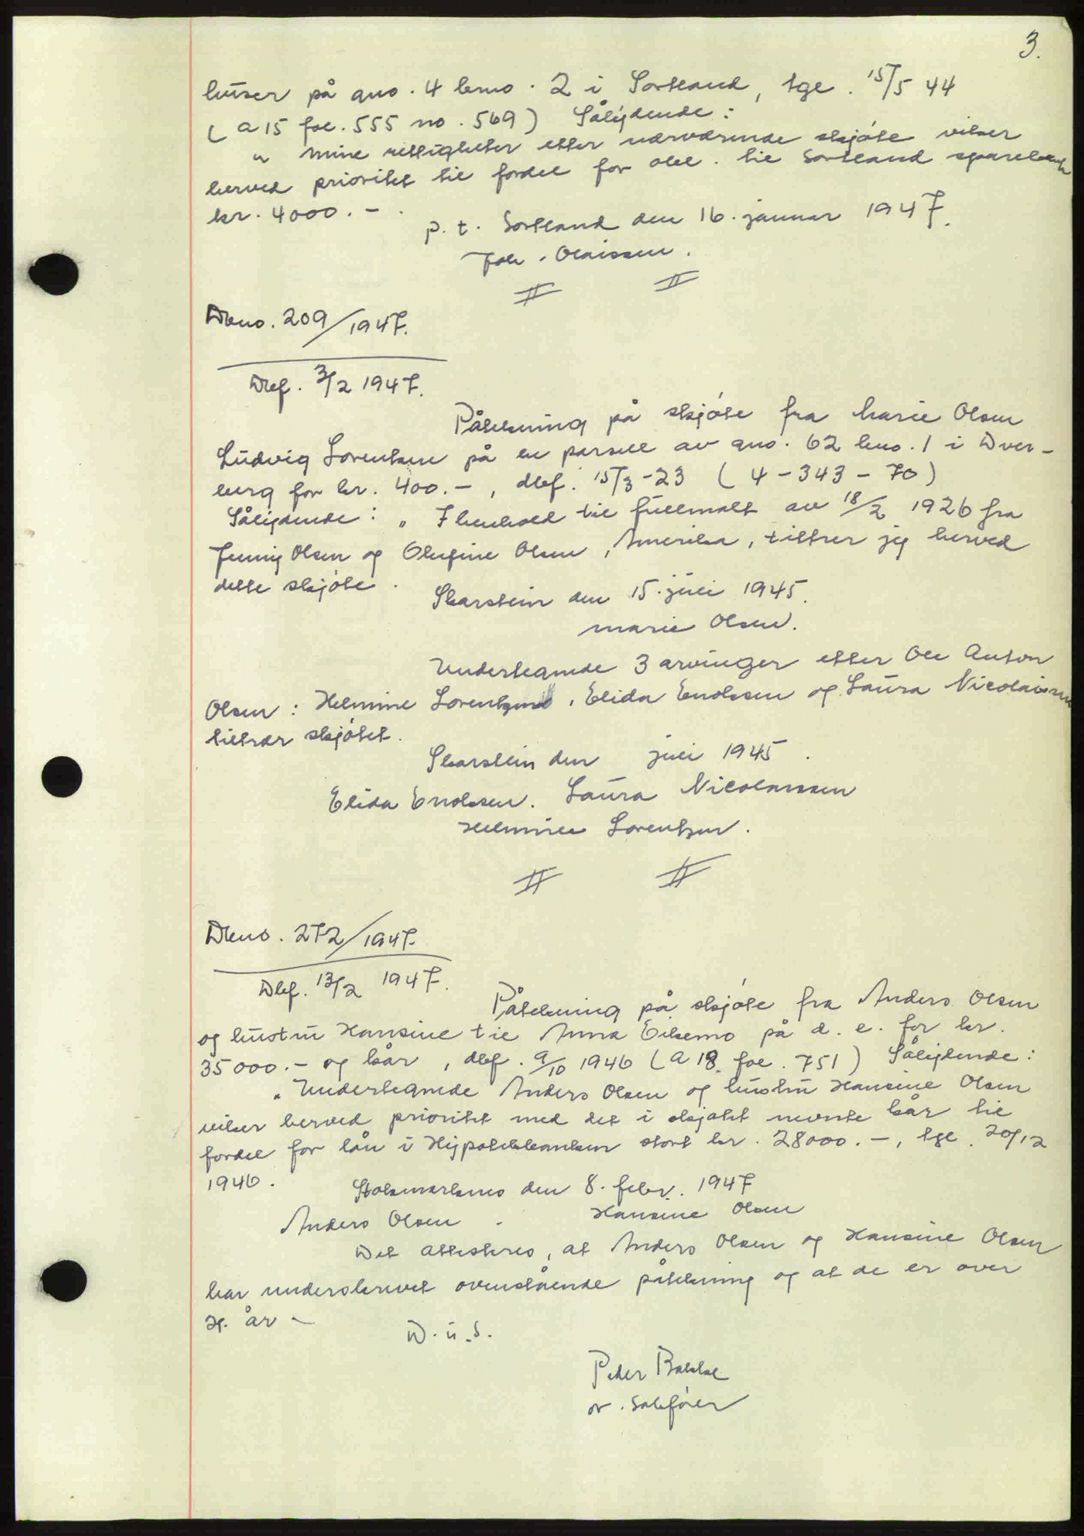 3.
huser på gno. 4 bno. 2 i Sortland, tgl. 15/5 44
(A 15 fol. 555 no. 569) Sålydende:
" Mine rettigheter etter nærværende skjøte viker
herved prioritet til fordel for obl. til Sortland sparebank
kr. 4000.-.
p. t. Sortland den 16. januar 1947.
Joh. Olaissen.
Dbno. 209/1947.
Dbf. 3/2 1947.
Påtekning på skjøte fra Marie Olsen
Ludvig Lorentzen på en parsell av gno. 62 bno. 1 i Dver-
berg for kr. 400.-, dbf. 15/3-23 (4-343-70)
Sålydende: " I henhold til fullmakt av 18/2 1926 fra
Jenny Olsen og Olufine Olsen, Amerika, tiltrer jeg herved
dette skjøte.
Skarstein den 15. juli 1945.
Marie Olsen.
Undertegnede 3 arvinger etter Ole Anton
Olsen: Helmine Lorentzen, Elida Enoksen og Laura Nicolaissen
tiltrær skjøtet.
Skarstein den juli 1945.
Elida Enoksen. Laura Nicolaissen
Helmine Lorentzen.
Dbno. 272/1947.
Dbf. 13/2 1947.
Påtekning på skjøte fra Anders Olsen
og hustru Hansine til Anna Eikemo på d. e. for kr.
35000.- og kår, dbf. 9/10 1946 (A 18 fol. 751) Sålydende:
" Undertegnede Anders Olsen og hustru Hansine Olsen
viker herved prioritet med det i skjøtet nevnte kår til
fordel for lån i Hypotekbanken stort kr. 28000.-, tgl. 20/12
1946.
Stokmarknes den 8. febr. 1947
Anders Olsen. Hansine Olsen
Det attesteres, at Anders Olsen og Hansine Olsen
har underskrevet ovenstående påtekning og at de er over
21 år -
D. u. s.
Peder Bakke
or. sakfører